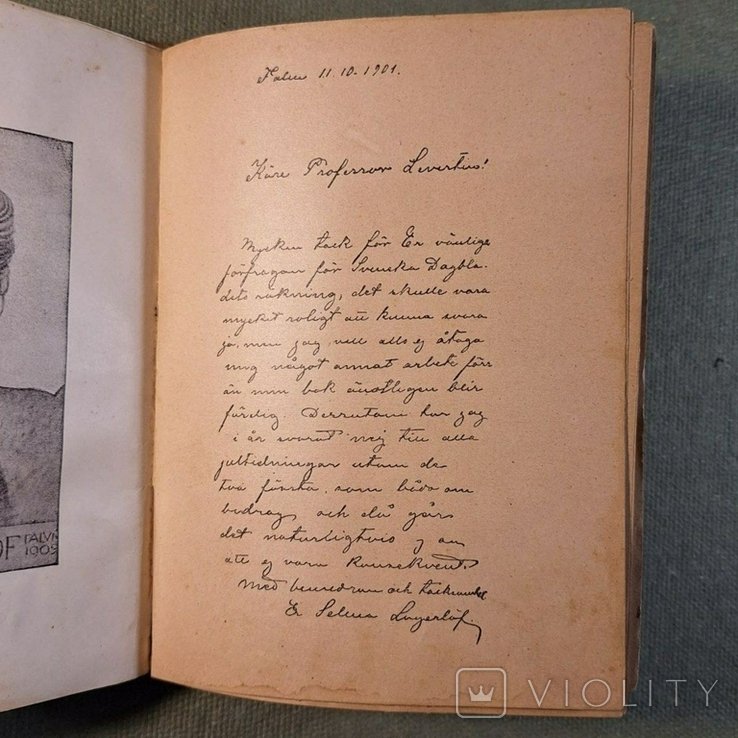 Falun 11.10.1901.
Käre Professor Levertin!
Mycken tack för Er vänliga
förfrågan för Svenska Dagbla-
dets räkning, det skulle vara
mycket roligt att kunna svara
ja, men jag vill alls ej åtaga
mig något annat arbete förr
än min bok äntligen blir
färdig. Dessutom har jag
i år svarat nej till alla
jultidningar utom de
två första, som bådo om
bidrag, och då går
det naturligtvis ej an
att ej vara konsekvent.
Med beundran och tacksamhet
Er Selma Lagerlöf.
ÖF FALUN
1905
VIOLITY